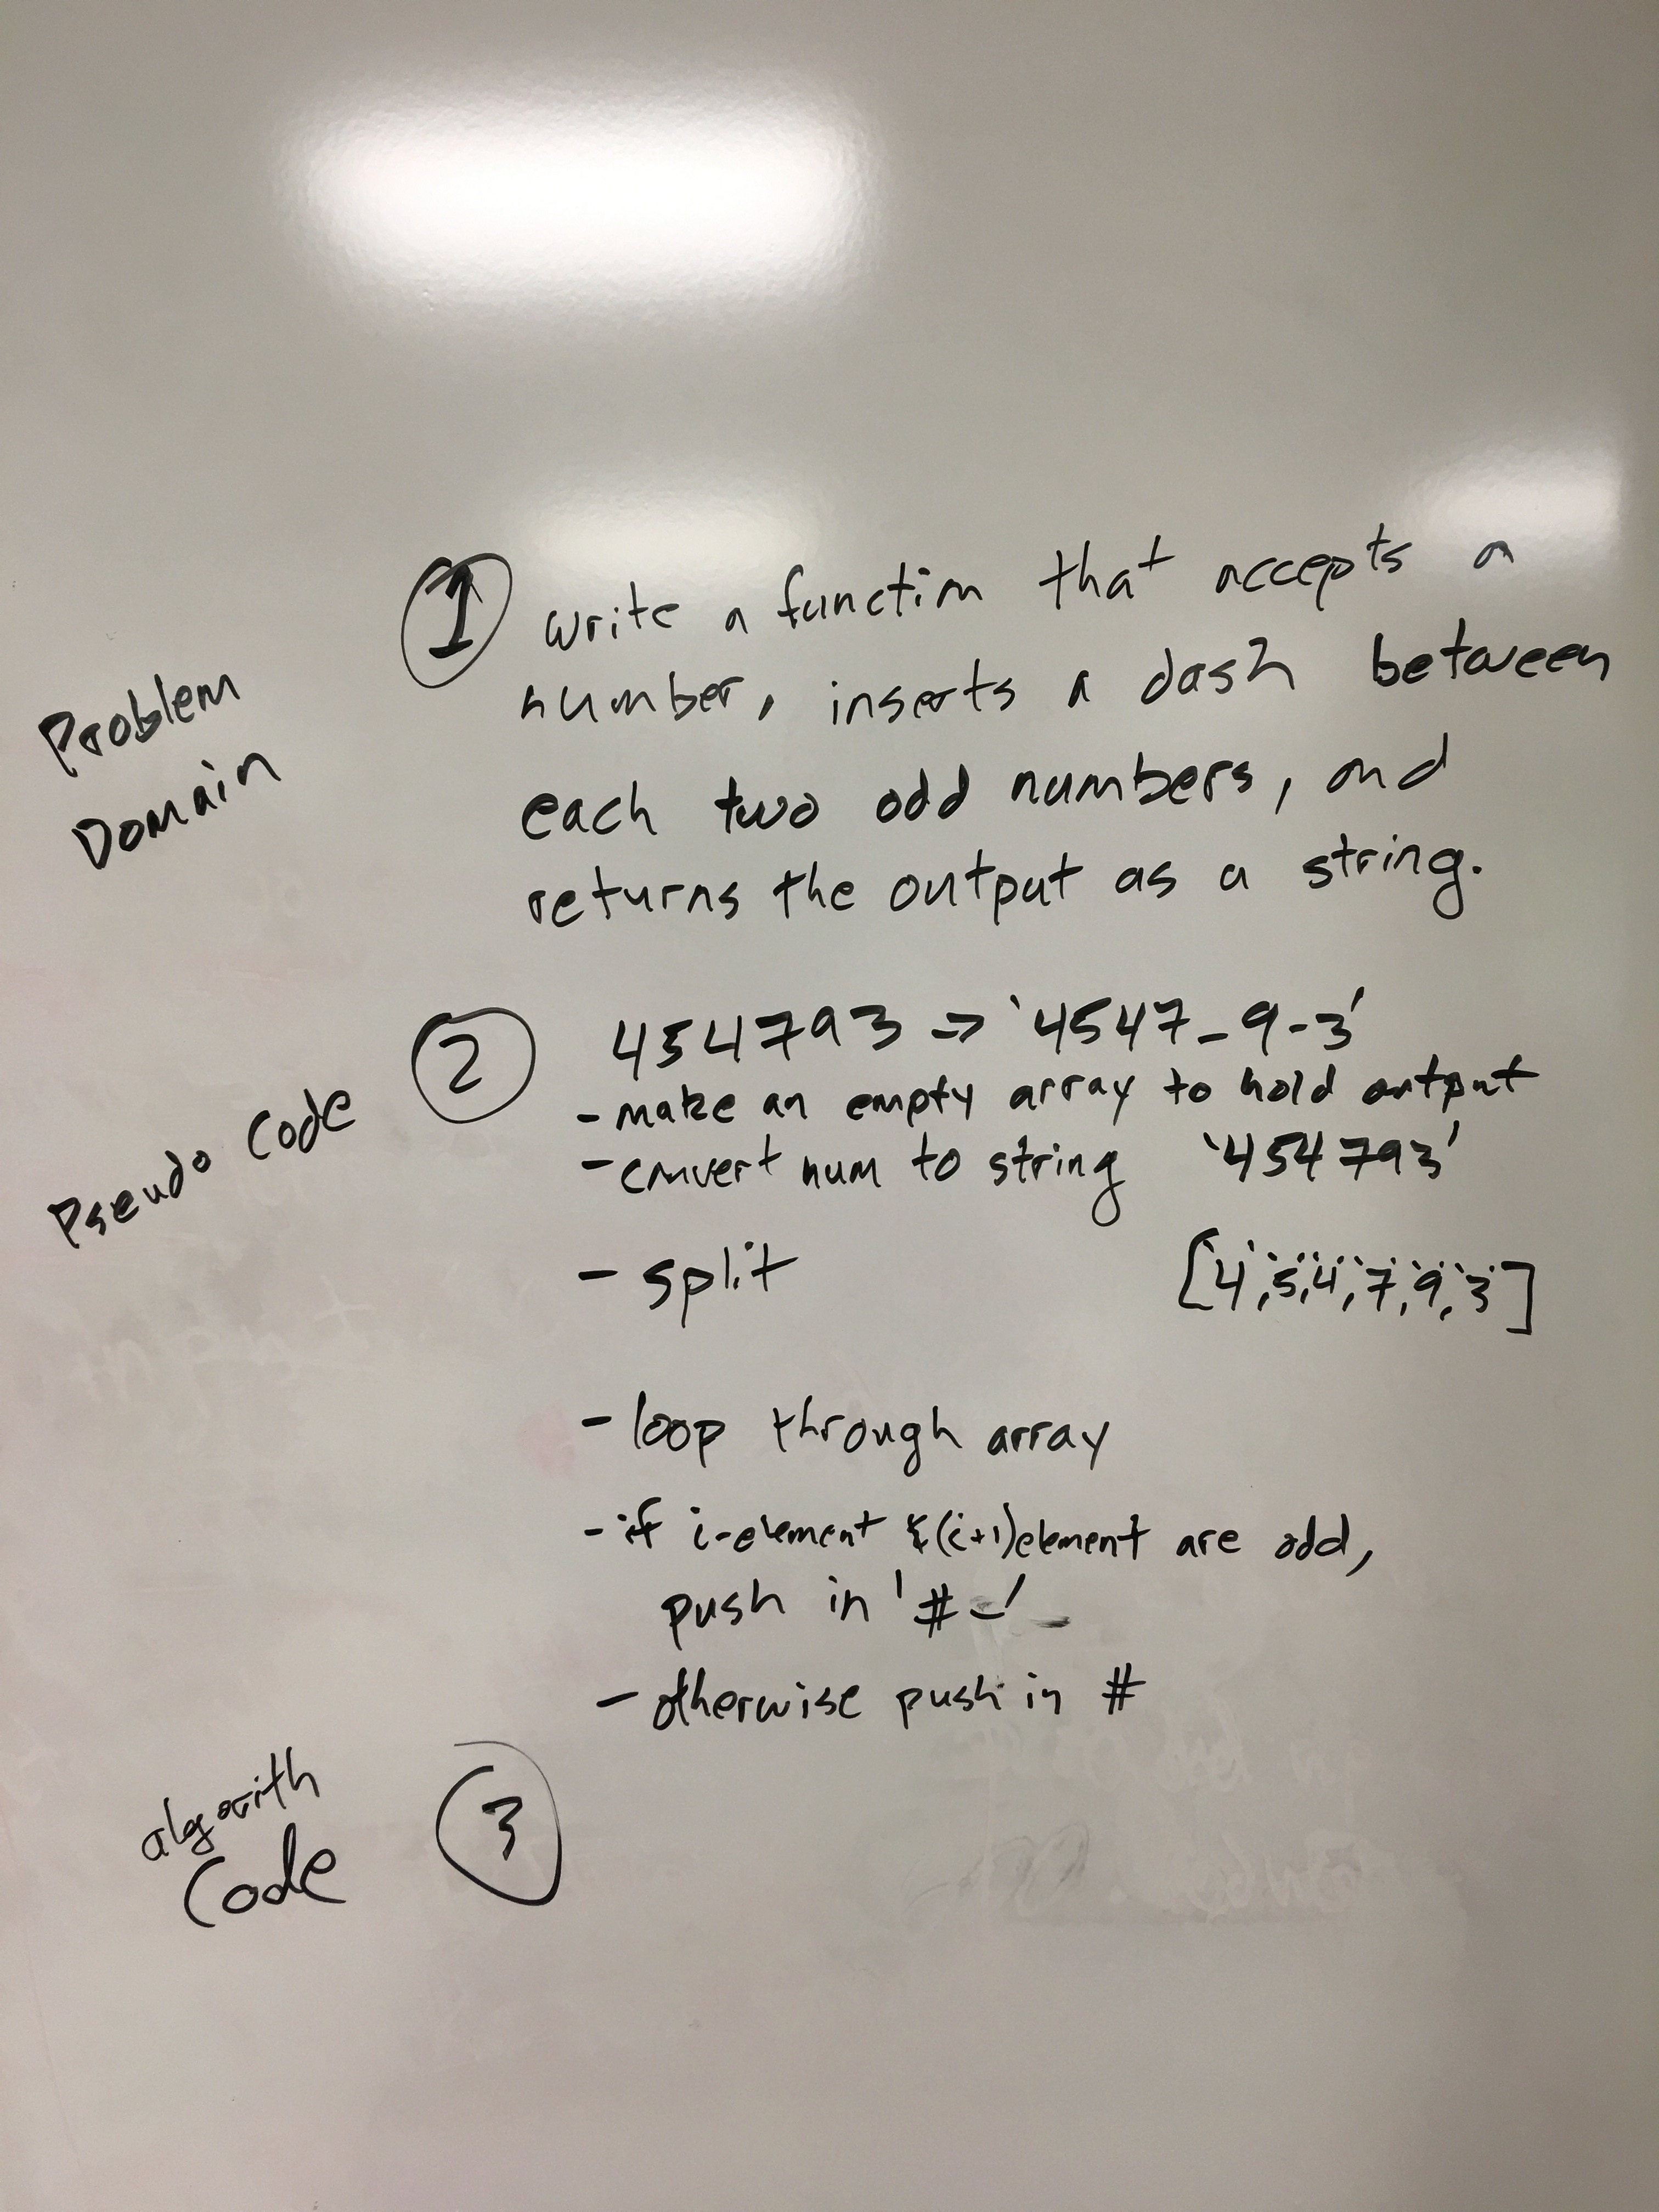 Problem
Domain
1 write a function that accepts a
number, inserts a dash between
each two odd numbers, and
returns the output as a string.
Pseudo Code
2 454793 => '4547-9-3'
- make an empty array to hold output
- convert num to string '454793'
- split ['4','5','4','7','9','3']
- loop through array
- if i-element &(i+1)element are odd,
push in '#-'
- otherwise push in #
algorith
Code
3